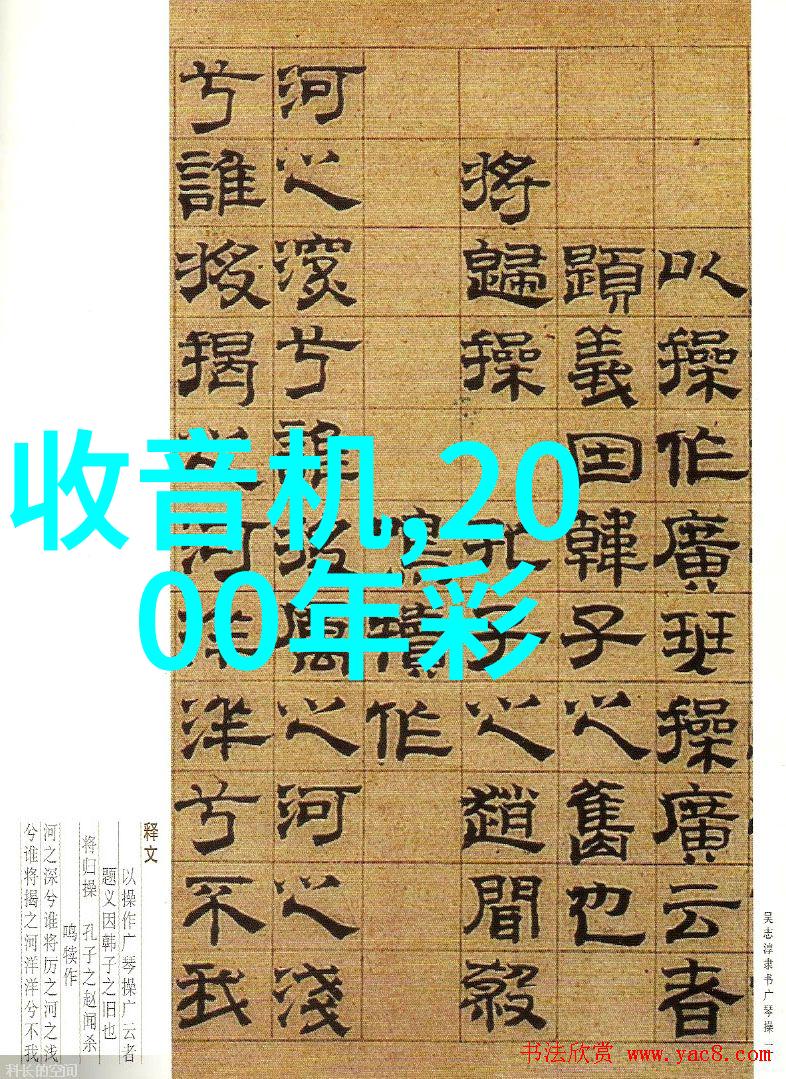 收音机,20
00年彩
以操作廣琴操廣云者
題義因韓子之舊也
將歸操 孔子之趙聞殺
鳴犢作
河之深兮誰將厲之河之淺
兮誰將揭之河洋洋兮不我
释文
以操作广琴操广云者
题义因韩子之旧也
将归操 孔子之赵闻杀
鸣犊作
河之深兮谁将厉之河之浅
兮谁将揭之河洋洋兮不我
吴志淳隶书广琴操
书法欣赏 www.yac8.com
科长的空间